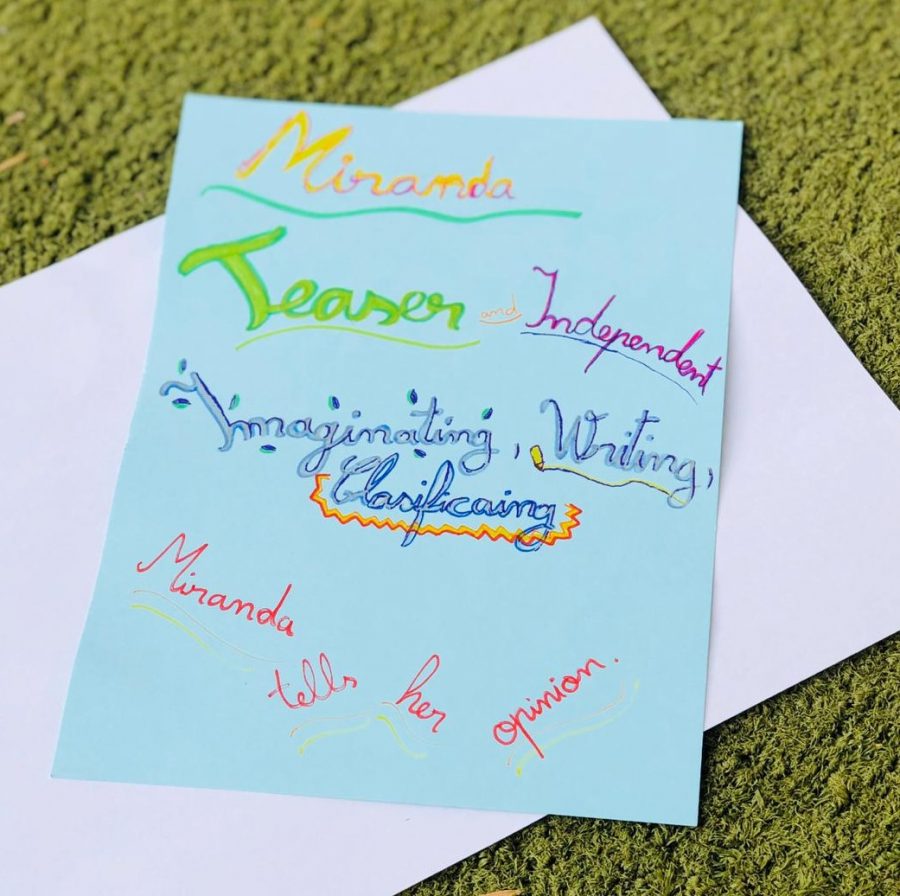 Miranda
Teaser and Independent
Imaginating, Writing,
Clasificaing
Miranda
tells her opinion.